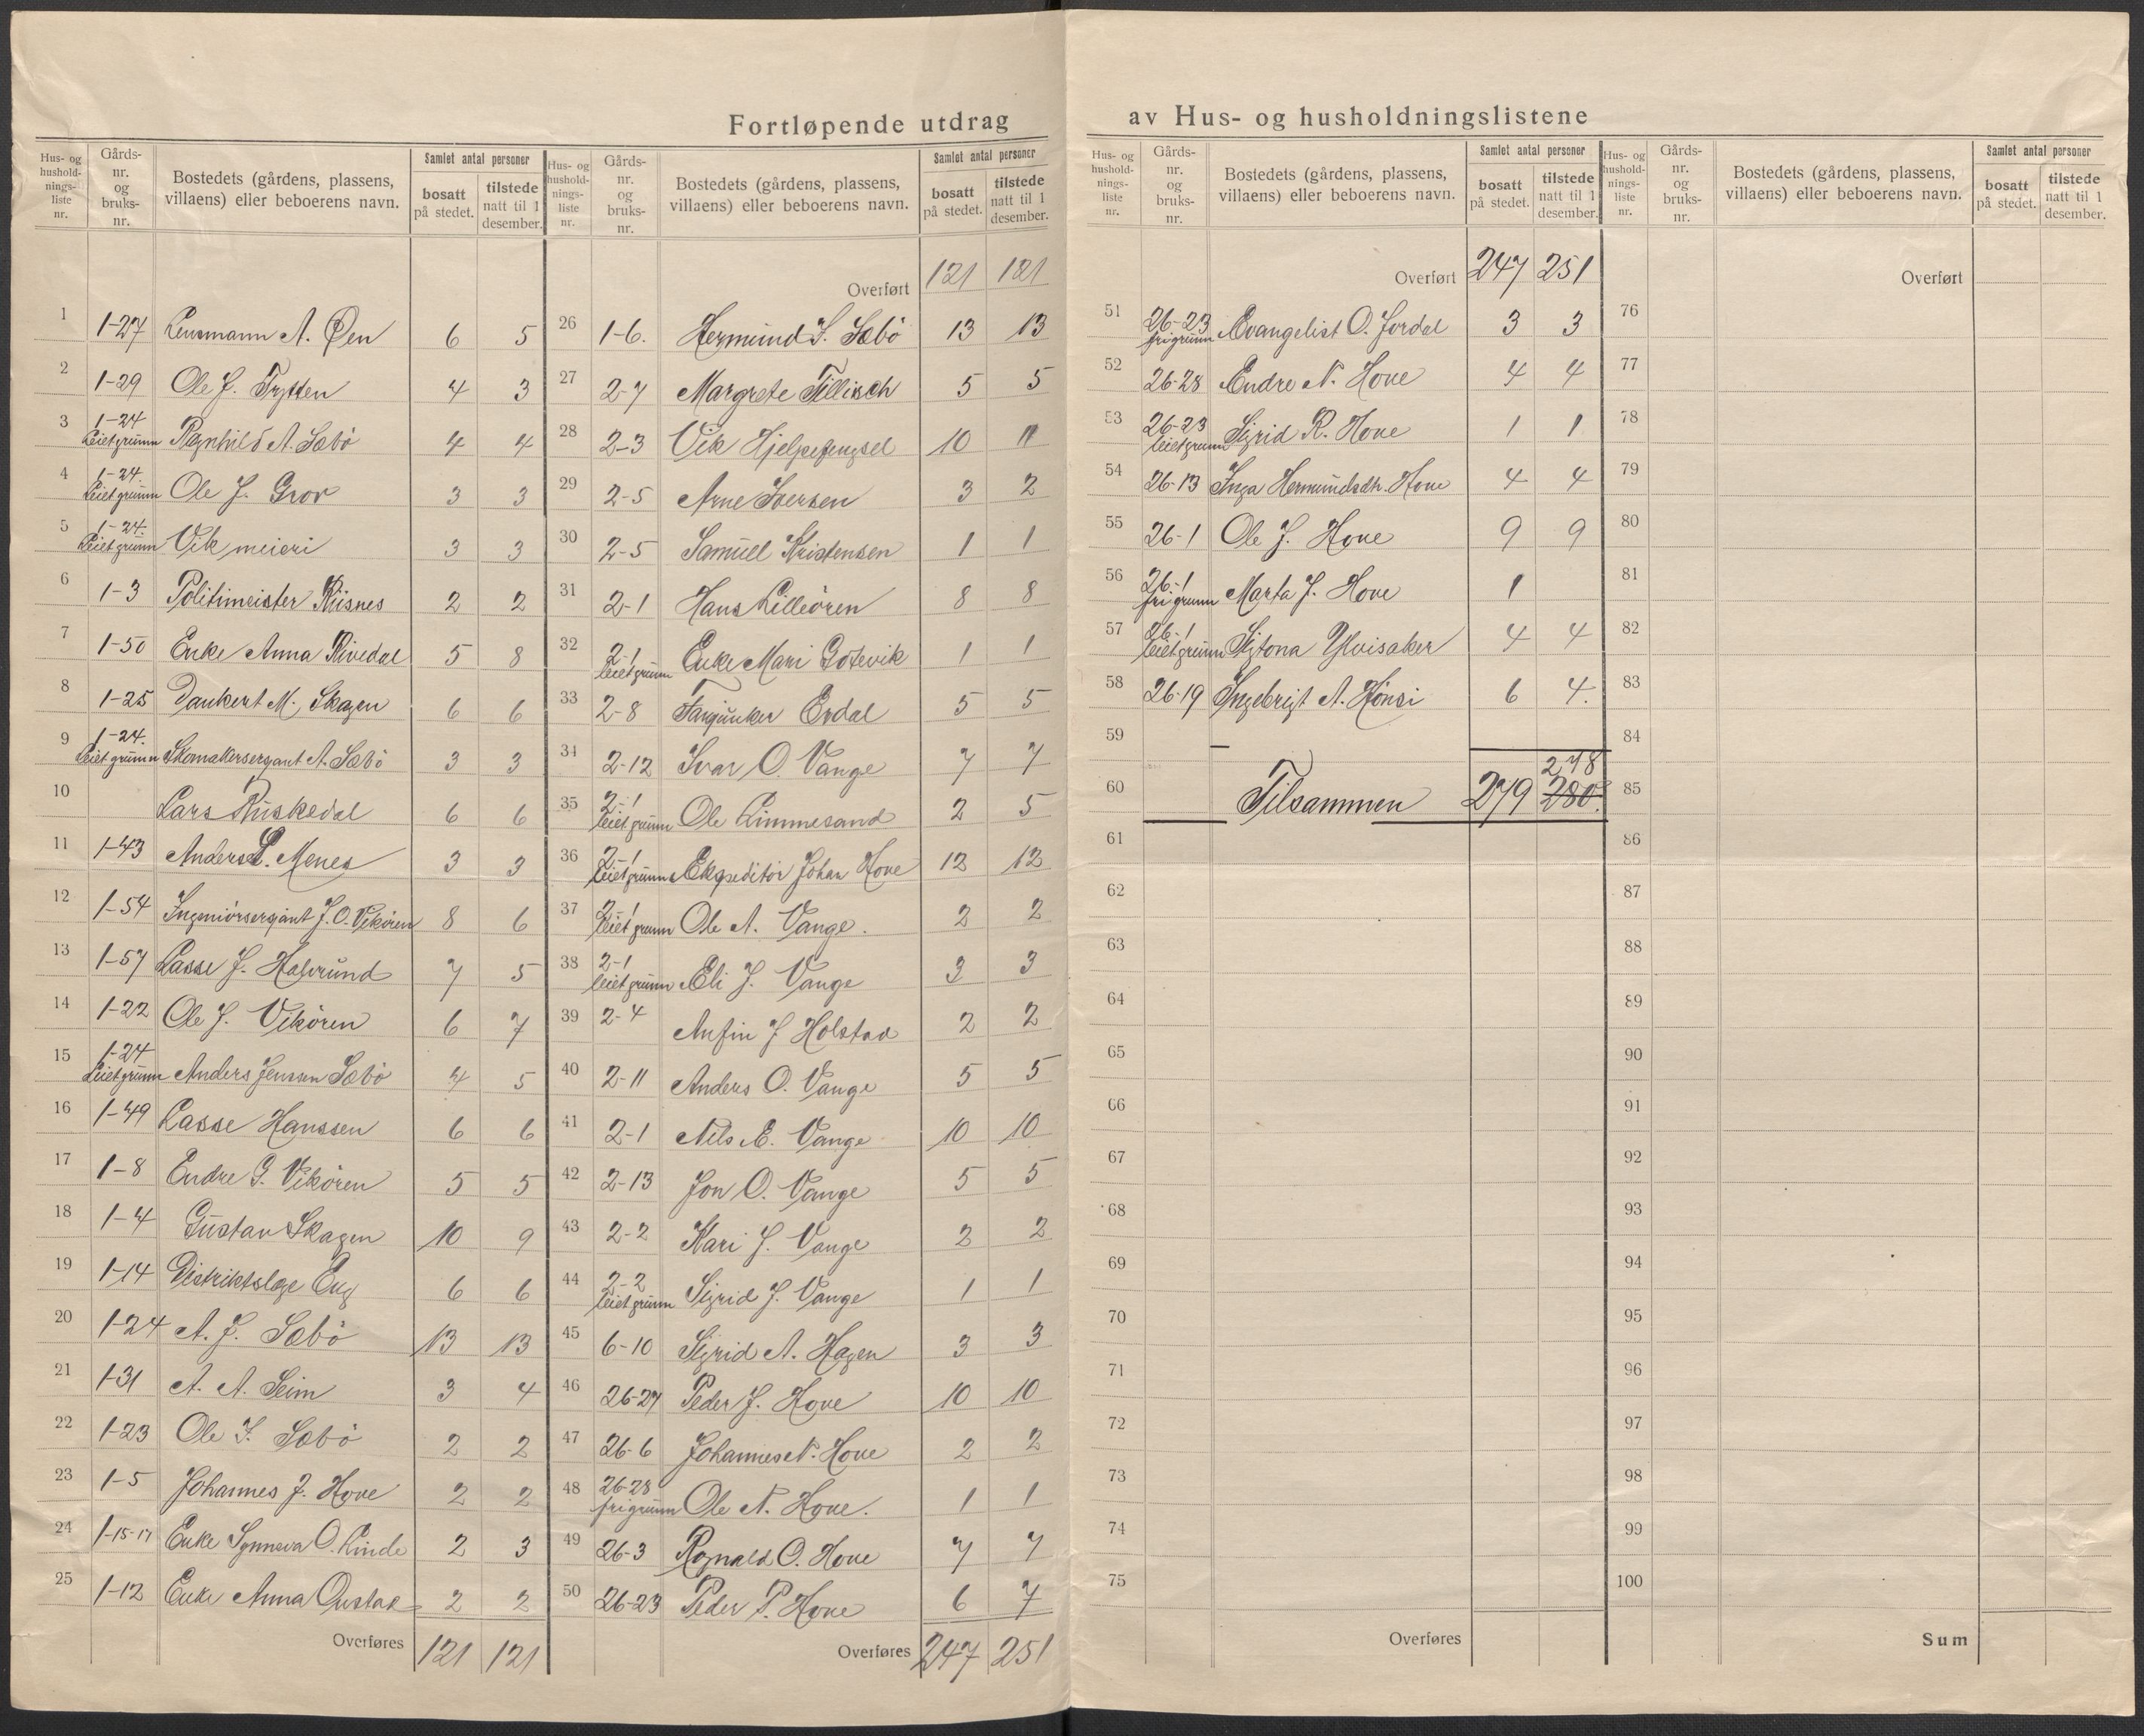 Fortløpende utdrag
av Hus- og husholdningslistene
Hus- og husholdnings-liste nr. | Gårds-nr. og bruks-nr. | Bostedets (gårdens, plassens, villaens) eller beboerens navn. | Samlet antal personer: bosatt på stedet. | tilstede natt til 1 desember.
1 1-27 Lensmann A. Øen 6 5
2 1-29 Ole J. Trytten 4 3
3 1-24 Leiet grunn Ragnhild A. Sæbö 4 4
4 1-24. Leiet grunn Ole J. Grov 3 3
5 1-24. Leiet grunn Vik meieri 3 3
6 1-3 Politimeister Riisnes 2 2
7 1-50 Enke Anna Rivedal 5 8
8 1-25 Dankert M. Skagen 6 6
9 1-24. Leiet grunn Skomakersersjant A. Sæbö 3 3
10 Lars Ruskedal 6 6
11 1-43 Anders L. Menes 3 3
12 1-54 Ingeniörsersjant J. O. Vikören 8 6
13 1-57 Lasse J. 7 5
14 1-22 Ole J. Vikören 6 7
15 1-24 Leiet grunn Anders Jensen Sæbö 4 5
16 1-49 Lasse Hanssen 6 6
17 1-8 Endre G. Vikören 5 5
18 1-4 Gustav Skagen 10 9
19 1-14 Distriktslæge Eng 6 6
20 1-24 A. J. Sæbö 13 13
21 1-31 A. A. Seim 3 4
22 1-23 Ole I. Sæbö 2 2
23 1-5 Johannes J. Hove 2 2
24 1-15-17 Enke Synneva O. Linde 2 3
25 1-12 Enke Anna 2 2
Overføres 121 121
Hus- og husholdnings-liste nr. | Gårds-nr. og bruks-nr. | Bostedets (gårdens, plassens, villaens) eller beboerens navn. | Samlet antal personer: bosatt på stedet. | tilstede natt til 1 desember.
Overført 121 121
26 1-6. Hermund S. Sæbö 13 13
27 2-7 Margrete Tillisch 5 5
28 2-3 Vik Hjelpefengsel 10 11
29 2-5 Arne Iversen 3 2
30 2-5 Samuel Kristensen 1 1
31 2-1 Hans Lilleören 8 8
32 2-1 leiet grunn Enke Mari Gotevik 1 1
33 2-8 Fanejunker Erdal 5 5
34 2-12 Ivar O. Vange 7 7
35 2-1 leiet grunn Ole Limmesand 2 5
36 2-1 leiet grunn Ekspeditör Johan Hove 12 12
37 2-1 leiet grunn Ole A. Vange. 2 2
38 2-1 leiet grunn Eli J. Vange 3 3
39 2-4 Anfin J Holstad 2 2
40 2-11 Anders O. Vange 5 5
41 2-1 Nils E. Vange 10 10
42 2-13 Jon O. Vange 5 5
43 2-2 Kari J. Vange 2 2
44 2-2 leiet grunn Sigrid J. Vange 1 1
45 6-10 Sigrid A. Hagen 3 3
46 26-27 Peder J. Hove 10 10
47 26-6 Johannes N. Hove 2 2
48 26-28 fri grunn Ole N. Hove. 1 1
49 26-3 Rognald O. Hove 7 7
50 26-23 Peder P. Hove 6 7
Overføres 247 251
Hus- og husholdnings-liste nr. | Gårds-nr. og bruks-nr. | Bostedets (gårdens, plassens, villaens) eller beboerens navn. | Samlet antal personer: bosatt på stedet. | tilstede natt til 1 desember.
Overført 247 251
51 26-23 fri grunn Evangelist O. Jordal 3 3
52 26-28 Endre N. Hove 4 4
53 26-23 leiet grunn Sigrid R. Hove 1 1
54 26-13 Inga Hermundsdtr. Hove 4 4
55 26-1 Ole J. Hove 9 9
56 26-1 fri grunn Marta J. Hove 1
57 26-1 leiet grunn Ylvisaker 4 4
58 26-19 Ingebrigt A. Hönsi 6 4.
59
278
60 Tilsammen 279 280.
61
62
63
64
65
66
67
68
69
70
71
72
73
74
75
Overføres
Hus- og husholdnings-liste nr. | Gårds-nr. og bruks-nr. | Bostedets (gårdens, plassens, villaens) eller beboerens navn. | Samlet antal personer: bosatt på stedet. | tilstede natt til 1 desember.
Overført
76
77
78
79
80
81
82
83
84
85
86
87
88
89
90
91
92
93
94
95
96
97
98
99
100
Sum